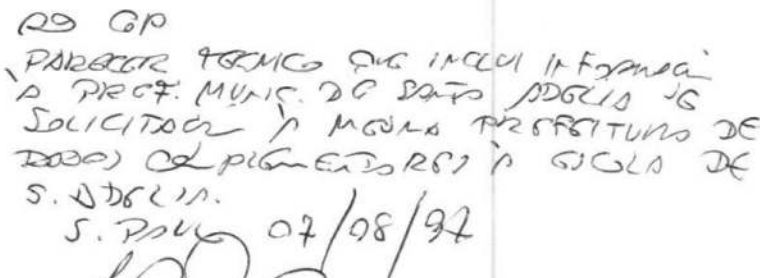 AO GP
PARECER TÉCNICO QUE INCLUI INFORMAÇÃO
À PREF. MUNIC. DE SANTO ADELIA E
SOLICITAÇÃO À MESMA PREFEITURA DE
DADOS COMPLEMENTARES À ESCOLA DE
S. ADELIA.
S. PAULO 07/08/97